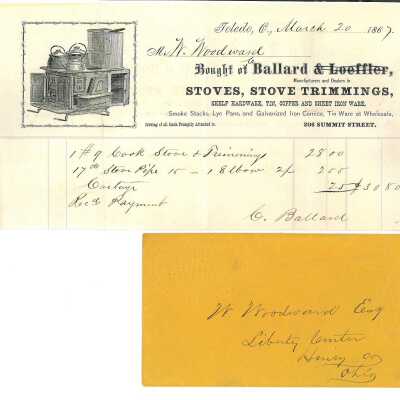 Toledo, O., March 20 1867.
M W. Woodward
Bought of Ballard & Loeffler,
Manufacturers and Dealers in
STOVES, STOVE TRIMMINGS,
SHELF HARDWARE, TIN, COPPER AND SHEET IRON WARE,
Smoke Stacks, Lye Pans, and Galvanized Iron Cornice, Tin Ware at Wholesale,
Jobbing of all kinds Promptly Attended to.
206 SUMMIT STREET.
1 # 9 Cook Stove & Trimming 28 00
17 lb Stove Pipe 15 - 1 Elbow 2/ 2 00
Cartage 25
Recd Payment
C. Ballard
W Woodward Esq
Liberty Center
Henry Co
Ohio